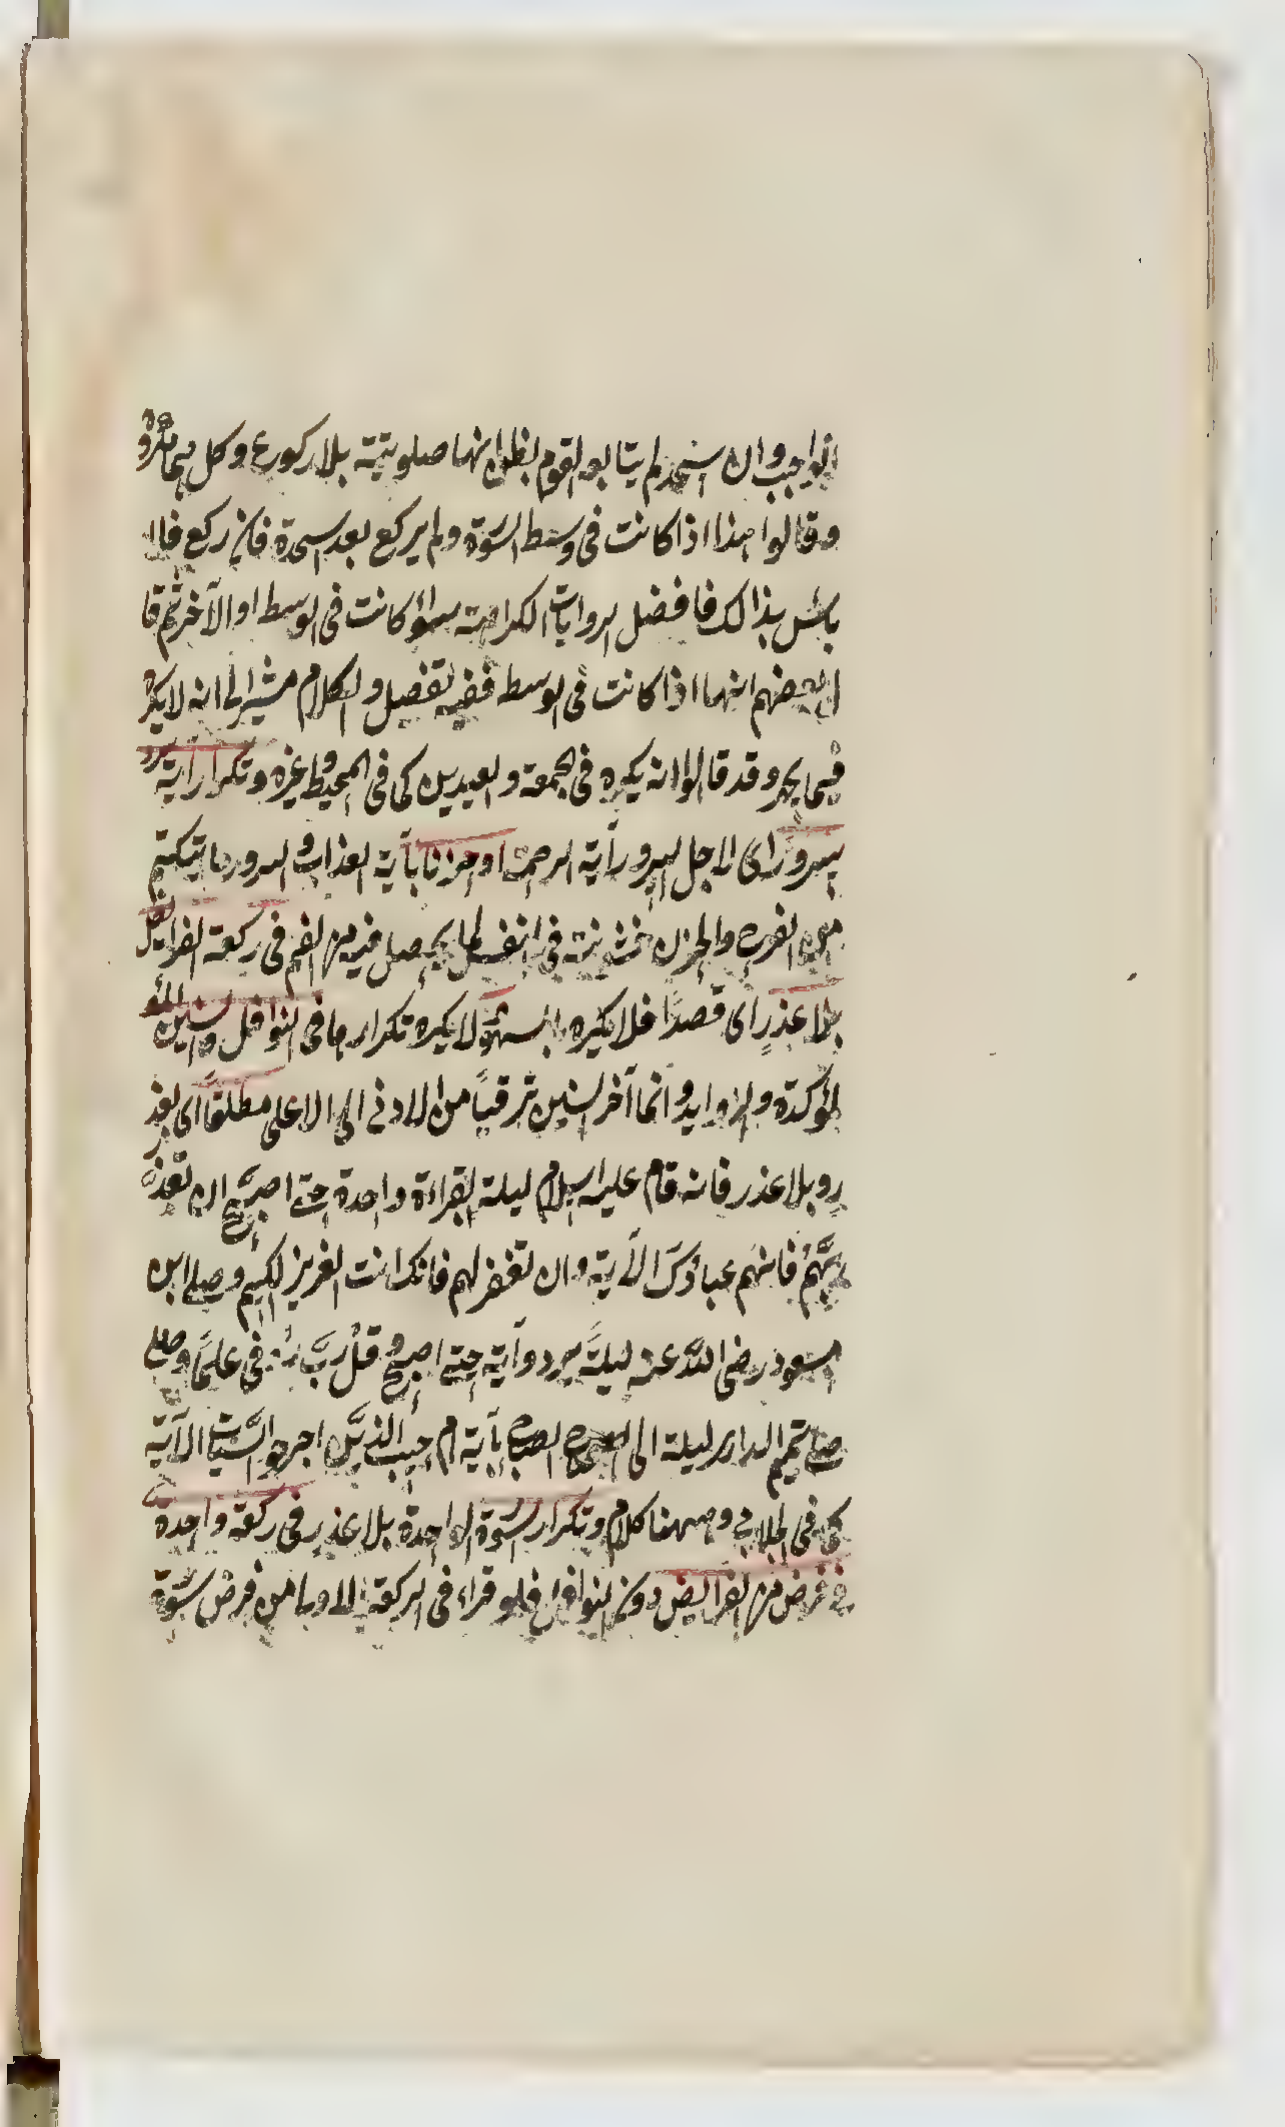 الواجب وان سجد لم يتابعه القوم لظن انها صلوتية بلا ركوع وكل منهما مكروه
وقالوا هذا اذا كانت فى وسط السورة ولم يركع بعد سجدة فان ركع فلا
باس بذالك فافضل الروايات الكراهة سواء كانت فى الوسط او الآخر ثم قا
ل بعضهم انها اذا كانت فى الوسط ففيه تفصيل والكلام مشير الى انه لا يكره
فيما يجهر وقد قالوا انه يكره فى الجمعة والعيدين كما فى المحيط وغيره وتكرار آية
سرورا اى لاجل السرور بآية الرحمة او حزنا بآية العذاب والسرور ما يكتم
من الفرح والحزن خشونة فى النفس لما يحصل فيه من الغم فى ركعة الفرايض
بلا عذر اى قصدًا فلا يكره بالسهو لا يكره تكرارها فى النوافل والسنن المؤ
لمؤكدة والزوايد وانما آخر السنن ترقيًا من الادنى الى الاعلى مطلقًا اى بعذ
ر وبلا عذر فانه قام عليه السلام ليلة بقراءة واحدة حتى اصبح ان تعذ
بهم فانهم عبادك الآية وان تغفر لهم فانك انت العزيز الحكيم وصلى ابن
مسعود رضى الله عنه ليلة يردد آية حتى اصبح وقل رب زدنى علمًا وصلى
تميم الدارى ليلة الى الصباح بآية ام حسب الذين اجترحوا السيئات الآية
كما فى الجلابى وههنا كلام وتكرار السورة الواحدة بلا عذر فى ركعة واحدة
فى فرض من الفرايض دون النوافل فلو قراء فى الركعة الاولى من فرض سورة